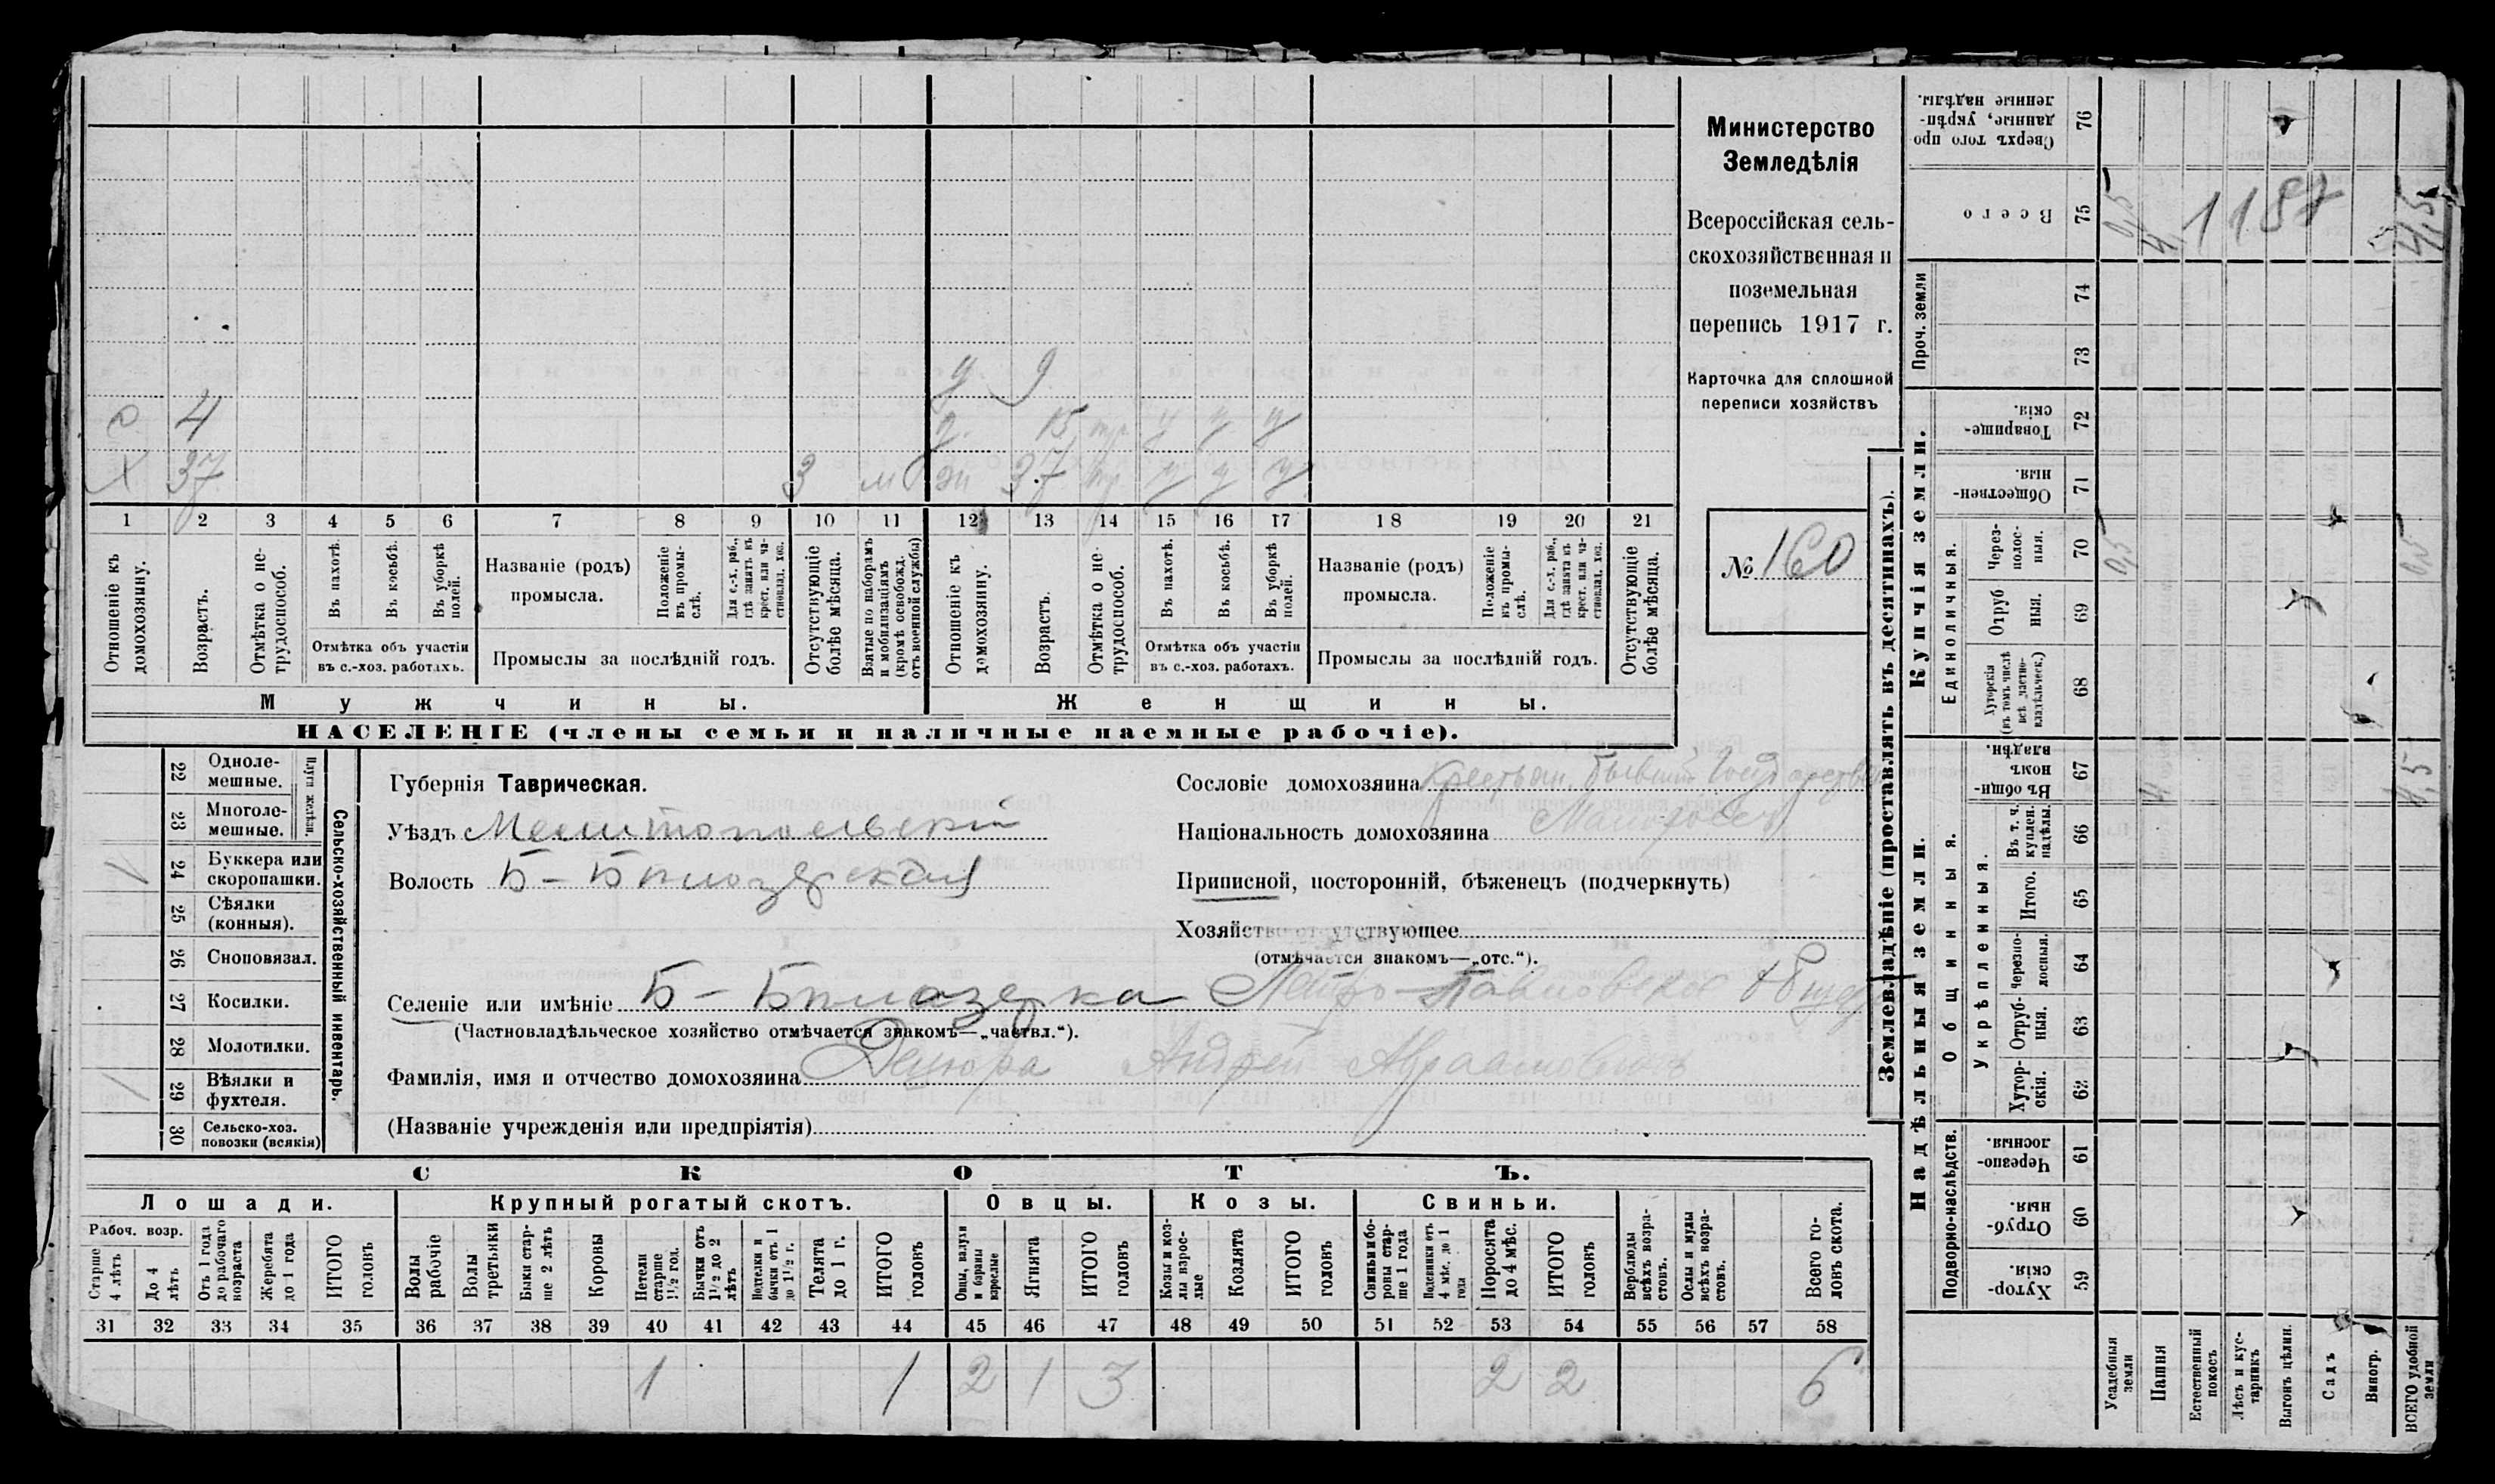 Министерство
Земледѣлія
Всероссійская сель-
скохозяйственная и
поземельная
перепись 1917 г.
Карточка для сплошной
переписи хозяйствъ
№ 160
д 9
с 4 д. 15 тр. у у у
Х 37 3 м ж 37 тр. у у у
1 2 3 4 5 6 7 8 9 10 11 12 13 14 15 16 17 18 19 20 21
Отношеніе къ домохозяину.
Возрастъ.
Отмѣтка о не-трудоспособ.
Въ пахотѣ.
Въ косьбѣ.
Въ уборкѣ полей.
Отмѣтка объ участіи
въ с.-хоз. работахъ.
Названіе (родъ)
промысла.
Положеніе въ промы-слѣ.
Для с.-х. раб., гдѣ занятъ въ крест. или ча-стновлад. хоз.
Промыслы за послѣдній годъ.
Отсутствующіе болѣе мѣсяца.
Взятые по наборамъ и мобилизаціямъ (кромѣ освобожд. отъ военной службы)
Отношеніе къ домохозяину.
Возрастъ.
Отмѣтка о не-трудоспособ.
Въ пахотѣ.
Въ косьбѣ.
Въ уборкѣ полей.
Отмѣтка объ участіи
въ с.-хоз. работахъ.
Названіе (родъ)
промысла.
Положеніе въ промы-слѣ.
Для с.-х. раб., гдѣ занята въ крест. или ча-стновлад. хоз.
Промыслы за послѣдній годъ.
Отсутствующіе болѣе мѣсяца.
Мужчины.
Женщины.
НАСЕЛЕНІЕ (члены семьи и наличные наемные рабочіе).
22 Одноле-мешные.
23 Многоле-мешные.
Плуги желѣзн.
24 Буккера или скоропашки.
25 Сѣялки (конныя).
26 Сноповязал.
27 Косилки.
28 Молотилки.
29 Вѣялки и фухтеля.
30 Сельско-хоз. повозки (всякія)
Сельско-хозяйственный инвентарь.
Губернія Таврическая.
Уѣздъ Мелитопольскій
Волость Б-Бѣлозерская
Сословіе домохозяина Крестьян. бывший Государств
Національность домохозяина Малоросс
Приписной, посторонній, бѣженецъ (подчеркнуть)
Хозяйство отсутствующее
(отмѣчается знакомъ—„отс.“).
Селеніе или имѣніе Б-Бѣлозерка Петро-Павловское общ
(Частновладѣльческое хозяйство отмѣчается знакомъ—„частвл.“).
Фамилія, имя и отчество домохозяина Децюра Андрей Авраамович
(Названіе учрежденія или предпріятія)
СКОТЪ.
Лошади. Крупный рогатый скотъ. Овцы. Козы. Свиньи.
Рабоч. возр.
Старше 4 лѣтъ
До 4 лѣтъ
Отъ 1 года до рабочаго возраста
Жеребята до 1 года
ИТОГО головъ
Волы рабочіе
Волы третьяки
Быки стар-ше 2 лѣтъ
Коровы
Нетели старше 1½ год.
Бычки отъ 1½ до 2 лѣтъ
Подтелки и бычки отъ 1 до 1½ г.
Телята до 1 г.
ИТОГО головъ
Овцы, валухи и бараны взрослые
Ягнята
ИТОГО головъ
Козы и коз-лы взрос-лые
Козлята
ИТОГО головъ
Свиньи и бо-ровы стар-ше 1 года
Подсвинки отъ 4 мѣс. до 1 года
Поросята до 4 мѣс.
ИТОГО головъ
Верблюды всѣхъ возра-стовъ.
Ослы и мулы всѣхъ возра-стовъ.
Всего го-ловъ скота.
31 32 33 34 35 36 37 38 39 40 41 42 43 44 45 46 47 48 49 50 51 52 53 54 55 56 57 58
1 1 2 1 3 2 2 6
Землевладѣніе (проставлять въ десятинахъ).
Надѣльныя земли.
Купчія земли.
Проч. земли
Подворно-наслѣдств.
Общинныя.
Укрѣпленныя.
Единоличныя.
Сверхъ того про данные, укрѣп-ленные надѣлы. 76
Всего 75
74
73
Товарище-скія. 72
Обществен-ныя. 71
Через-полос-ныя. 70
Отруб ныя. 69
Хуторскія (въ томъ числѣ всѣ частно-владѣльческ.) 68
Въ общин-номъ владѣн. 67
Въ т. ч. куплен. надѣлы. 66
Итого. 65
черезпо-лосныя. 64
Отруб-ныя. 63
Хутор-скія. 62
Черезпо-лосныя. 61
Отруб-ныя. 60
Хутор-скія. 59
Усадебныя земли
Пашня
Естественный покосъ
Лѣсъ и кус-тарникъ
Выгонъ цѣлин.
Садъ
Виногр.
ВСЕГО удобной земли
0,5 4 1187 4,5
0,5 0,5
4 4,5